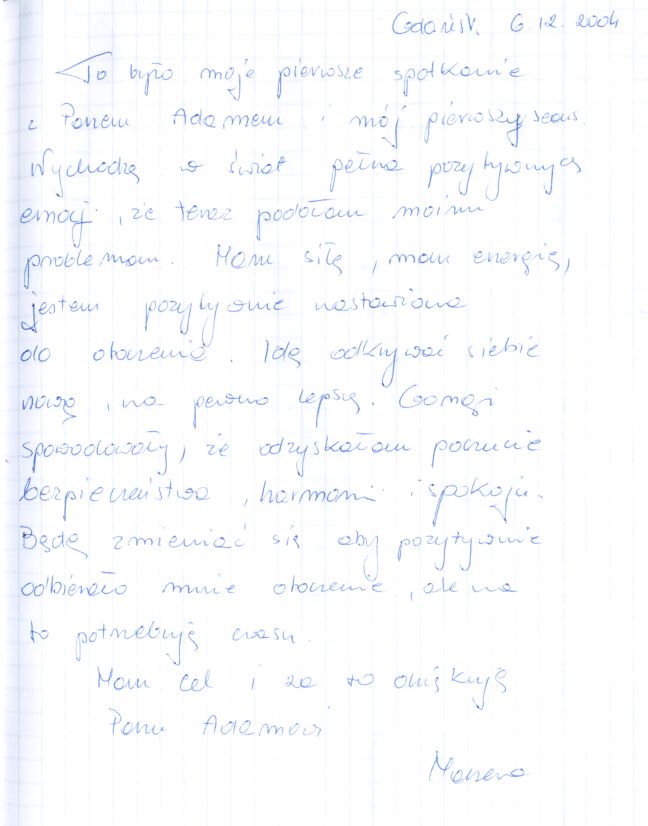 Gdańsk 6.12.2004
To było moje pierwsze spotkanie
z Panem Adamem i mój pierwszy seans.
Wychodzę w świat pełna pozytywnych
emocji, że teraz podołam moim
problemom. Mam siłę, mam energię,
jestem pozytywnie nastawiona
do otoczenia. Idę odkrywać siebie
nową, na pewno lepszą. Gongi
spowodowały, że odzyskałam poczucie
bezpieczeństwa, harmonii i spokoju.
Będę zmieniać się aby pozytywnie
odbierało mnie otoczenie, ale na
to potrzebuję czasu.
Mam cel i za to dziękuję
Panu Adamowi